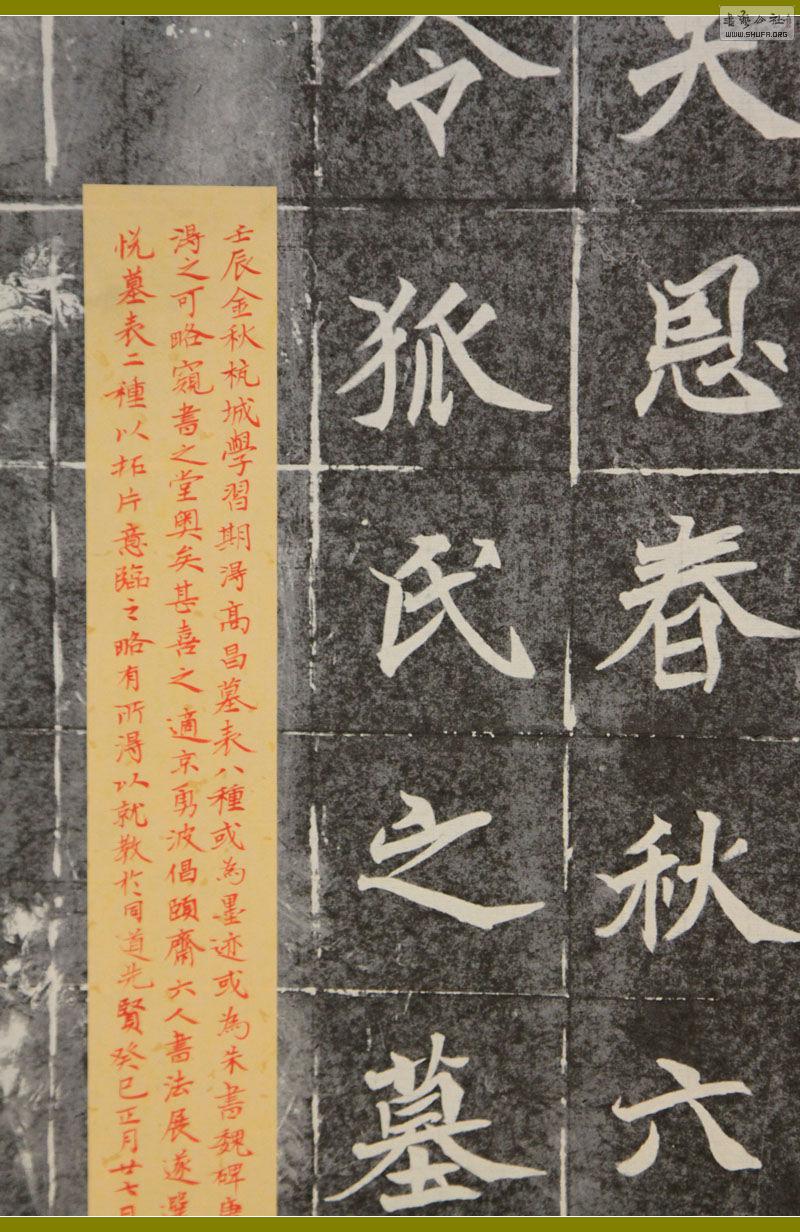 恩春秋六
令狐氏之墓
壬辰金秋杭城學習期淂高昌墓表八種或為墨迹或為朱書魏碑唐
淂之可略窺書之堂奧矣甚喜之適京勇波倡頤齋六人書法展遂選
悅墓表二種以拓片意臨之略有所淂以就教於同道先賢癸巳正月廿七日
書法公社
WWW.SHUFA.ORG